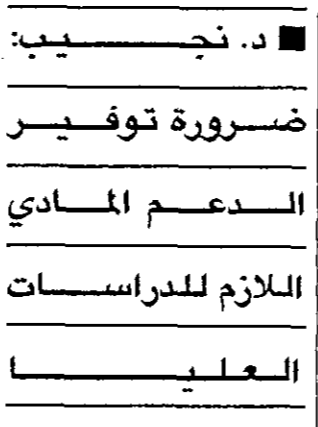 ■ د. نجيب:
ضرورة توفير
الدعم المادي
اللازم للدراسات
العليا